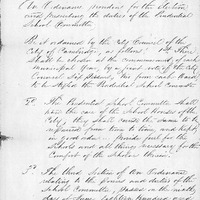 An Ordinance providing for the election
and prescribing the duties of the Prudential
School Committee
Be it ordained by the City Council of the
City of as follows: There
shall be chosen at the commencement of each
Municipal Year, by a joint vote of the
Council Six persons, two from each Ward
to be styled the Prudential School Committee
2d The Prudential School Committee shall
have the care of the School Houses of the
City; they shall cause the same to be
repaired from time to time, and kept
in good order; Provide fuel for the
Schools and all things necessary for the
Comfort of the Scholars therein.
3d The third section of an Ordinance
relating to the powers and duties of the
School Committee, passed on the ninth
day of June, eighteen hundred and